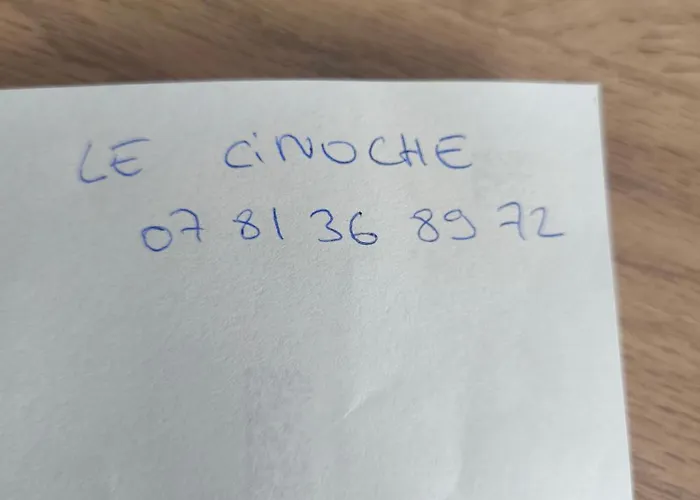 LE CiNOCHE
07 81 36 89 72